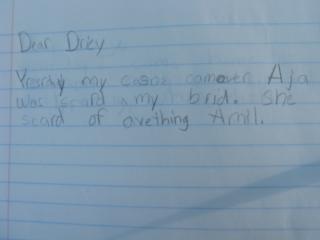 Dear Dciey
Yesrdy my casne camover Aja
was scard my brid. She
scard of avething Amil.